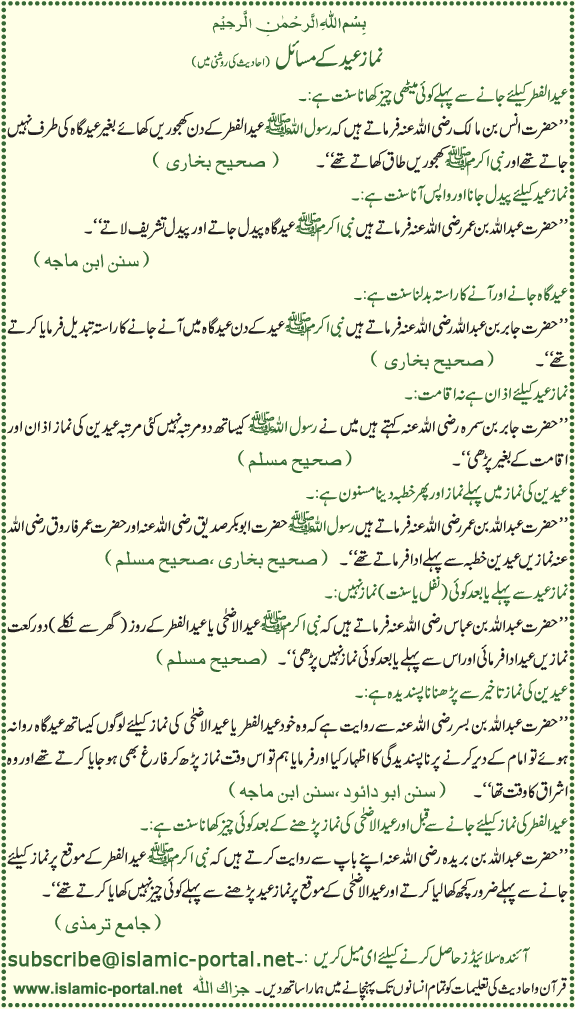 بِسْمِ اللّٰهِ الرَّحْمٰنِ الرَّحِيْمِ
نماز عید کے مسائل (احادیث کی روشنی میں)
عیدالفطر کیلئے جانے سے پہلے کوئی میٹھی چیز کھانا سنت ہے:۔
’’حضرت انس بن مالک رضی اللہ عنہ فرماتے ہیں کہ رسول اللہ ﷺ عیدالفطر کے دن کھجوریں کھائے بغیر عیدگاہ کی طرف نہیں
جاتے تھے اور نبی اکرم ﷺ کھجوریں طاق کھاتے تھے‘‘۔ ( صحیح بخاری )
نماز عید کیلئے پیدل جانا اور واپس آنا سنت ہے:۔
’’حضرت عبداللہ بن عمر رضی اللہ عنہ فرماتے ہیں نبی اکرم ﷺ عیدگاہ پیدل جاتے اور پیدل تشریف لاتے‘‘۔
(سنن ابن ماجہ )
عیدگاہ جانے اور آنے کا راستہ بدلنا سنت ہے:۔
’’حضرت جابر بن عبداللہ رضی اللہ عنہ فرماتے ہیں نبی اکرم ﷺ عید کے دن عیدگاہ میں آنے جانے کا راستہ تبدیل فرمایا کرتے
تھے‘‘۔ ( صحیح بخاری )
نماز عید کیلئے اذان ہے نہ اقامت:۔
’’حضرت جابر بن سمرہ رضی اللہ عنہ کہتے ہیں میں نے رسول اللہ ﷺ کیساتھ دو مرتبہ نہیں کئی مرتبہ عیدین کی نماز اذان اور
اقامت کے بغیر پڑھی‘‘۔ (صحیح مسلم )
عیدین کی نماز میں پہلے نماز اور پھر خطبہ دینا مسنون ہے:۔
’’حضرت عبداللہ بن عمر رضی اللہ عنہ فرماتے ہیں رسول اللہ ﷺ حضرت ابوبکر صدیق رضی اللہ عنہ اور حضرت عمر فاروق رضی اللہ
عنہ نمازیں عیدین خطبہ سے پہلے ادا فرماتے تھے‘‘۔ ( صحیح بخاری ،صحیح مسلم )
نماز عید سے پہلے یا بعد کوئی (نفل یا سنت) نماز نہیں:۔
’’حضرت عبداللہ بن عباس رضی اللہ عنہ فرماتے ہیں کہ نبی اکرم ﷺ عیدالاضحٰی یا عیدالفطر کے روز (گھر سے نکلے) دو رکعت
نمازیں عید ادا فرمائی اور اس سے پہلے یا بعد کوئی نماز نہیں پڑھی‘‘۔ (صحیح مسلم )
عیدین کی نماز تاخیر سے پڑھنا ناپسندیدہ ہے:۔
’’حضرت عبداللہ بن بسر رضی اللہ عنہ سے روایت ہے کہ وہ خود عیدالفطر یا عیدالاضحٰی کی نماز کیلئے لوگوں کیساتھ عیدگاہ روانہ
ہوئے تو امام کے دیر کرنے پر ناپسندیدگی کا اظہار کیا اور فرمایا ہم تو اس وقت نماز پڑھ کر فارغ بھی ہو جایا کرتے تھے اور وہ
اشراق کا وقت تھا‘‘۔ ( سنن ابو دائود ،سنن ابن ماجہ )
عیدالفطر کی نماز کیلئے جانے سے قبل اور عیدالاضحٰی کی نماز پڑھنے کے بعد کوئی چیز کھانا سنت ہے:۔
’’حضرت عبداللہ بن بریدہ رضی اللہ عنہ اپنے باپ سے روایت کرتے ہیں کہ نبی اکرم ﷺ عیدالفطر کے موقع پر نماز کیلئے
جانے سے پہلے ضرور کچھ کھا لیا کرتے اور عیدالاضحٰی کے موقع پر نماز عید پڑھنے سے پہلے کوئی چیز نہیں کھایا کرتے تھے‘‘۔
(جامع ترمذی )
آئندہ سلائیڈز حاصل کرنے کیلئے ای میل کریں :۔ subscribe@islamic-portal.net
قرآن و احادیث کی تعلیمات کو تمام انسانوں تک پہنچانے میں ہمارا ساتھ دیں۔ جزاك الله www.islamic-portal.net